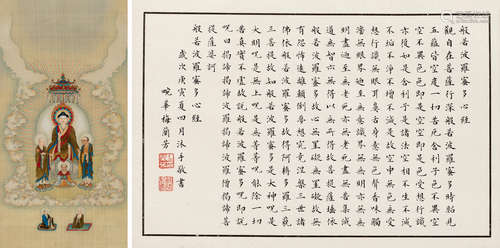 般若波羅密多心經
觀自在菩薩行深般若波羅密多時照見
五蘊皆空度一切苦厄舍利子色不異
空空不異色色即是空空即是色受想行識
亦復如是舍利子是諸法空相不生不滅
不垢不淨不增不減是故空中無色無受
想行識無眼耳鼻舌身意無色聲香味觸
法無眼界迺至無意識界無無明亦無無
明盡迺至無老死亦無老死盡無苦集滅
道無智亦無得以無所得故菩提薩埵依
般若波羅密多故心無罣礙無罣礙故無
有恐怖遠離顛倒夢想究竟涅槃三世諸
佛依般若波羅密多故得阿耨多羅三藐
三菩提故知般若波羅密多是大神呪是
大明呪是無上呪是無等等呪能除一切
苦真實不虛故說般若波羅密多呪即說
呪曰揭諦揭諦波羅揭諦波羅僧揭諦菩
提薩婆訶
般若波羅密多心經
歲次庚寅夏四月沐手敬書
畹華梅蘭芳